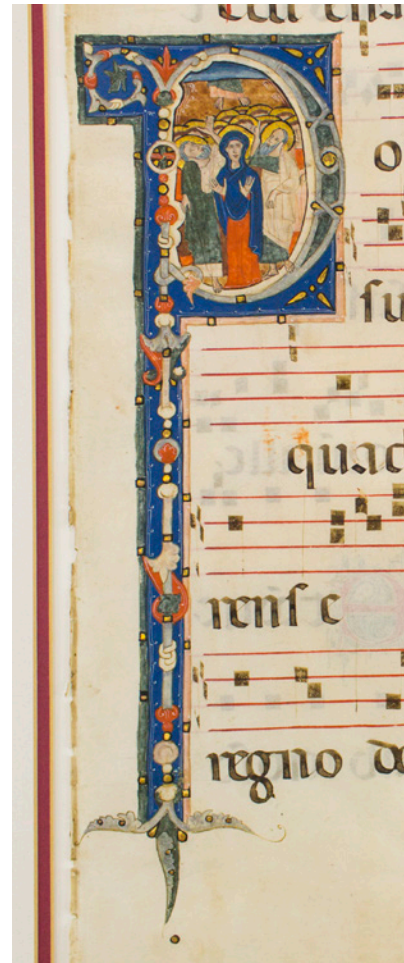 P
o
su
quad
rens e
regno de